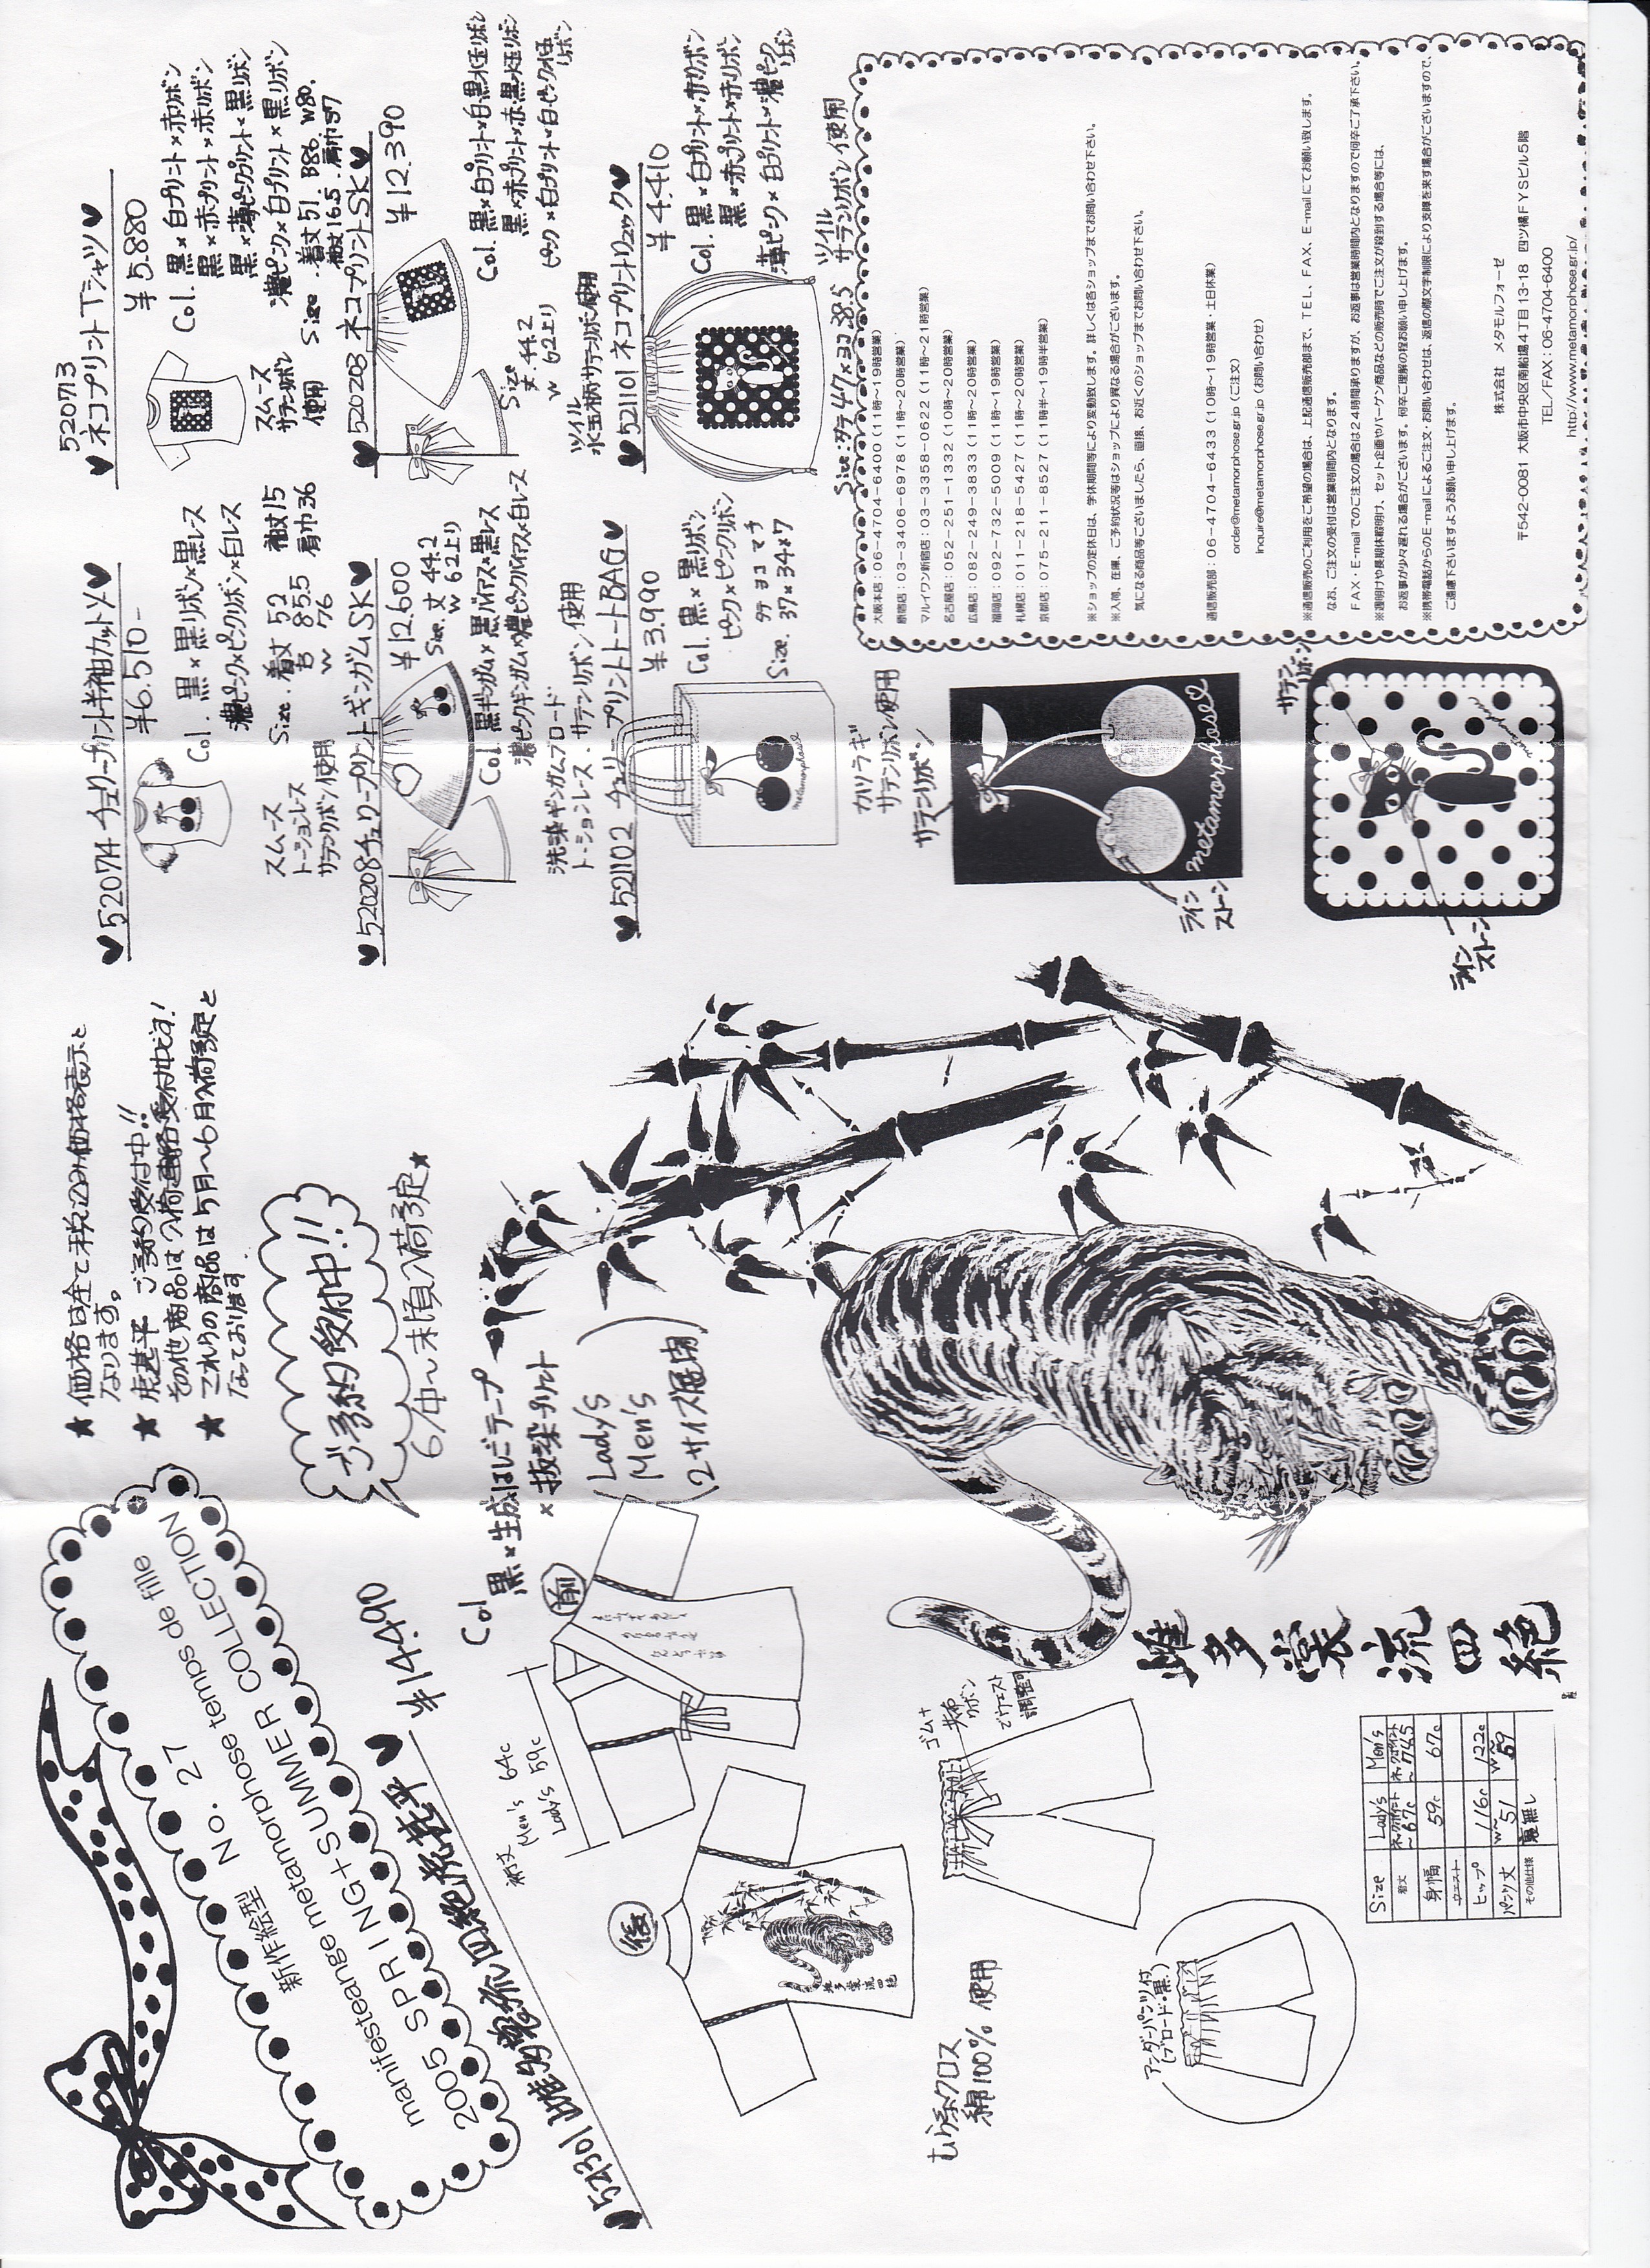 No. 27
新作絵型
manifesteange metamorphose temps de fille
2005 SPRING+SUMMER COLLECTION
★ 価格は全て税込み価格表示と
なります。
★ 虎甚平 ご予約受付中!!
その他商品は入荷連絡受付中です!
★ これらの商品は5月〜6月入荷予定と
なっております
ご予約受付中!!
6/中〜末頃入荷予定★
¥14.490
Col
黒×生成はしごテープ
×抜染プリント
Lady's
Men's
(2サイズ展開)
前
裄丈
Men's 64c
Lady's 59c
後
ゴム+
共布
リボン
でウエスト
調整可
むら糸クロス
綿100% 使用
アンダーパンツ付
(ブロード・黒)
Size Lady's Men's
着丈 ネックポイント〜67c ネックポイント〜74.5
身幅 59c 67c
ウエスト
ヒップ 116c 122c
パンツ丈 W〜51 W〜59
その他仕様 裏無し
雌多裳流四絶
♥520714 チェリープリント半袖カットソー♥
¥6.510-
Col. 黒×黒リボン×黒レース
濃ピンク×ピンクリボン×白レース
Size. 着丈 52 袖丈15
B 85.5 肩巾36
W 76
スムース
トーションレース
サテンリボン使用
♥520208チェリープリントギンガムSK♥
¥12.600
Size. 丈 44.2
W 62上り
Col. 黒ギンガム×黒バイアス×黒レース
濃ピンクギンガム×濃ピンクバイアス×白レース
先染ギンガムブロード
トーションレース・サテンリボン使用
♥521102 チェリープリントトートBAG♥
¥3.990
Col. 黒×黒リボン
ピンク×ピンクリボン
タテ ヨコ マチ
Size. 37×34×7
metamorphose
カツラギ
サテンリボン使用
サテンリボン
metamorphose
ライン
ストーン
サテン
リボン
ライン
ストーン
520713
♥ネコプリントTシャツ♥
¥5.880
Col. 黒×白プリント×赤リボン
黒×赤プリント×赤リボン
黒×薄ピンクプリント×黒リボン
濃ピンク×白プリント×黒リボン
Size. 着丈51. B86. W80.
袖丈16.5. 肩巾37
スムース
サテンリボン
使用
♥520203 ネコプリントSK♥
¥12.390
Size
丈. 44.2
W 62上り
Col. 黒×白プリント×白・黒水玉リボン
黒×赤プリント×赤・黒水玉リボン
ピンク×白プリント×白・ピンク水玉リボン
ツイル
水玉柄サテンリボン使用
♥521101 ネコプリントリュック♥
¥4.410
Col. 黒×白プリント×赤リボン
黒×赤プリント×赤リボン
薄ピンク×白プリント×濃ピンクリボン
Size:タテ47×ヨコ38.5
ツイル
サテンリボン使用
大阪本店:06-4704-6400(11時〜19時営業)
原宿店:03-3406-6978(11時〜20時営業)
マルイワン新宿店:03-3358-0622(11時〜21時営業)
名古屋店:052-251-1332(10時〜20時営業)
広島店:082-249-3833(11時〜20時営業)
福岡店:092-732-5009(11時〜19時営業)
札幌店:011-218-5427(11時〜20時営業)
京都店:075-211-8527(11時半〜19時半営業)
※ショップの定休日は、学休期間等により変動致します。詳しくは各ショップまでお問い合わせ下さい。
※入荷、在庫、ご予約状況等はショップにより異なる場合がございます。
気になる商品等ございましたら、直接、お近くのショップまでお問い合わせ下さい。
通信販売部:06-4704-6433(10時〜19時営業・土日休業)
order@metamorphose.gr.jp(ご注文)
inquire@metamorphose.gr.jp(お問い合わせ)
※通信販売のご利用をご希望の場合は、上記通信販売部まで、TEL、FAX、E-mailにてお願い致します。
なお、ご注文の受付は営業時間内となります。
FAX・E-mailでのご注文の場合は24時間承りますが、お返事は営業時間内となりますので何卒ご了承下さい。
※週明けや長期休暇明け、セット企画やバーゲン商品などの販売時でご注文が殺到する場合等には、
お返事が少々遅れる場合がございます。何卒ご理解の程お願い申し上げます。
※携帯電話からのE-mailによるご注文・お問い合わせは、返信の際文字制限により支障を来す場合がございますので、
ご遠慮下さいますようお願い申し上げます。
株式会社 メタモルフォーゼ
〒542-0081 大阪市中央区南船場4丁目13-18 四ツ橋FYSビル5階
TEL/FAX:06-4704-6400
http://www.metamorphose.gr.jp/